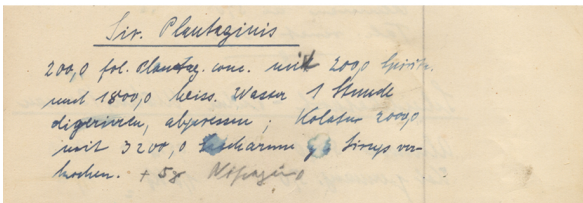 Sir. Plantaginis
200,0 fol. Plantag. conc. mit 200,0 Spirit.
und 1800,0 heiss. Wasser 1 Stunde
digerieren, abpressen; Kolatur 2000,0
mit 3200,0 Sirup ver-
kochen. + 5g Nipagin